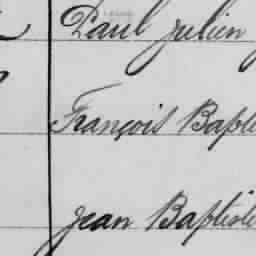 Paul Julien
François Bapti
Jean Baptiste